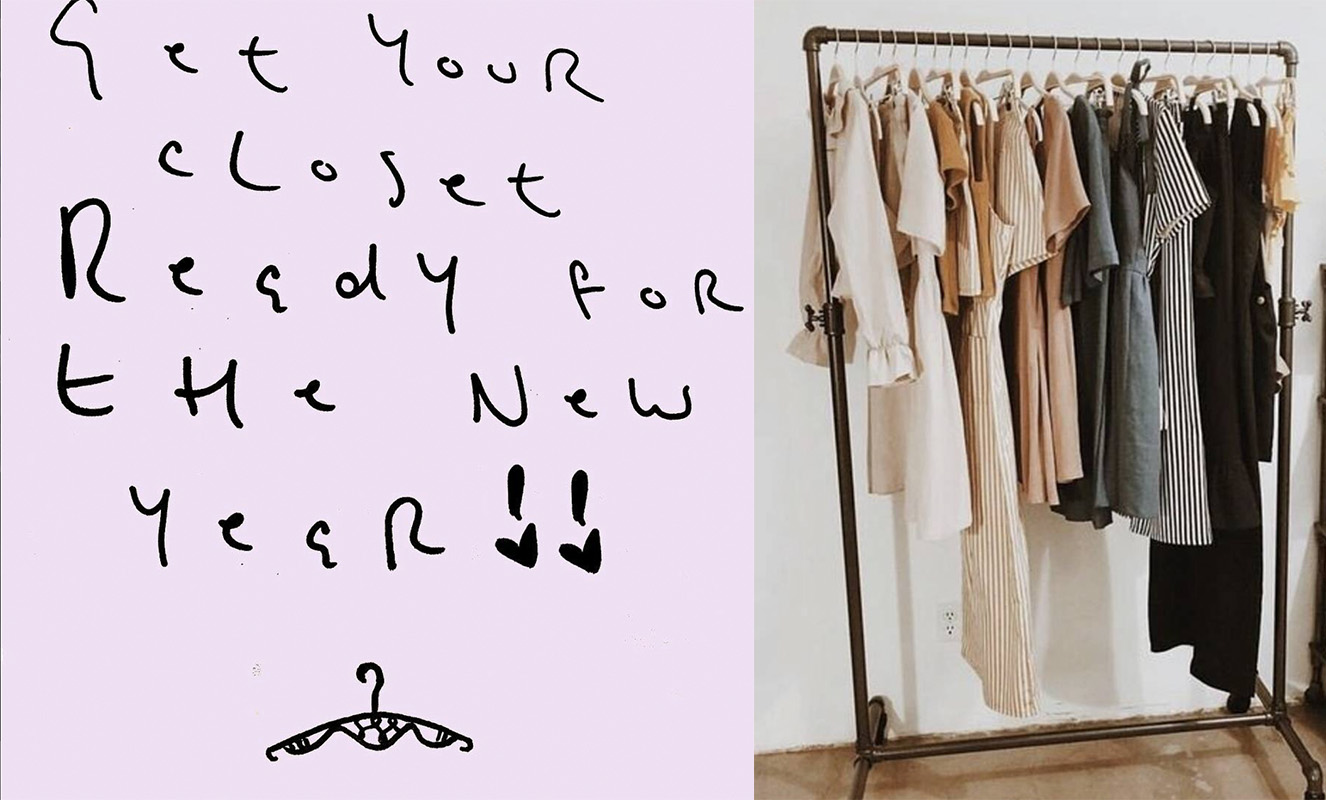 Get YOUR
cLoset
Ready FOR
tHe New
YeaR !!